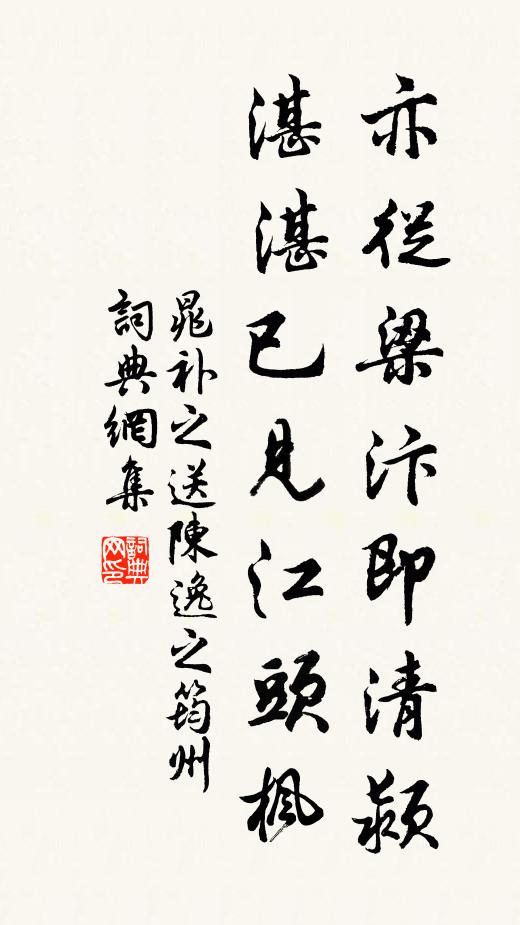 亦從梁汴即清潁
湛湛已見江頭楓
晁补之送陳逸之筠州
詞典網集
詞典网印